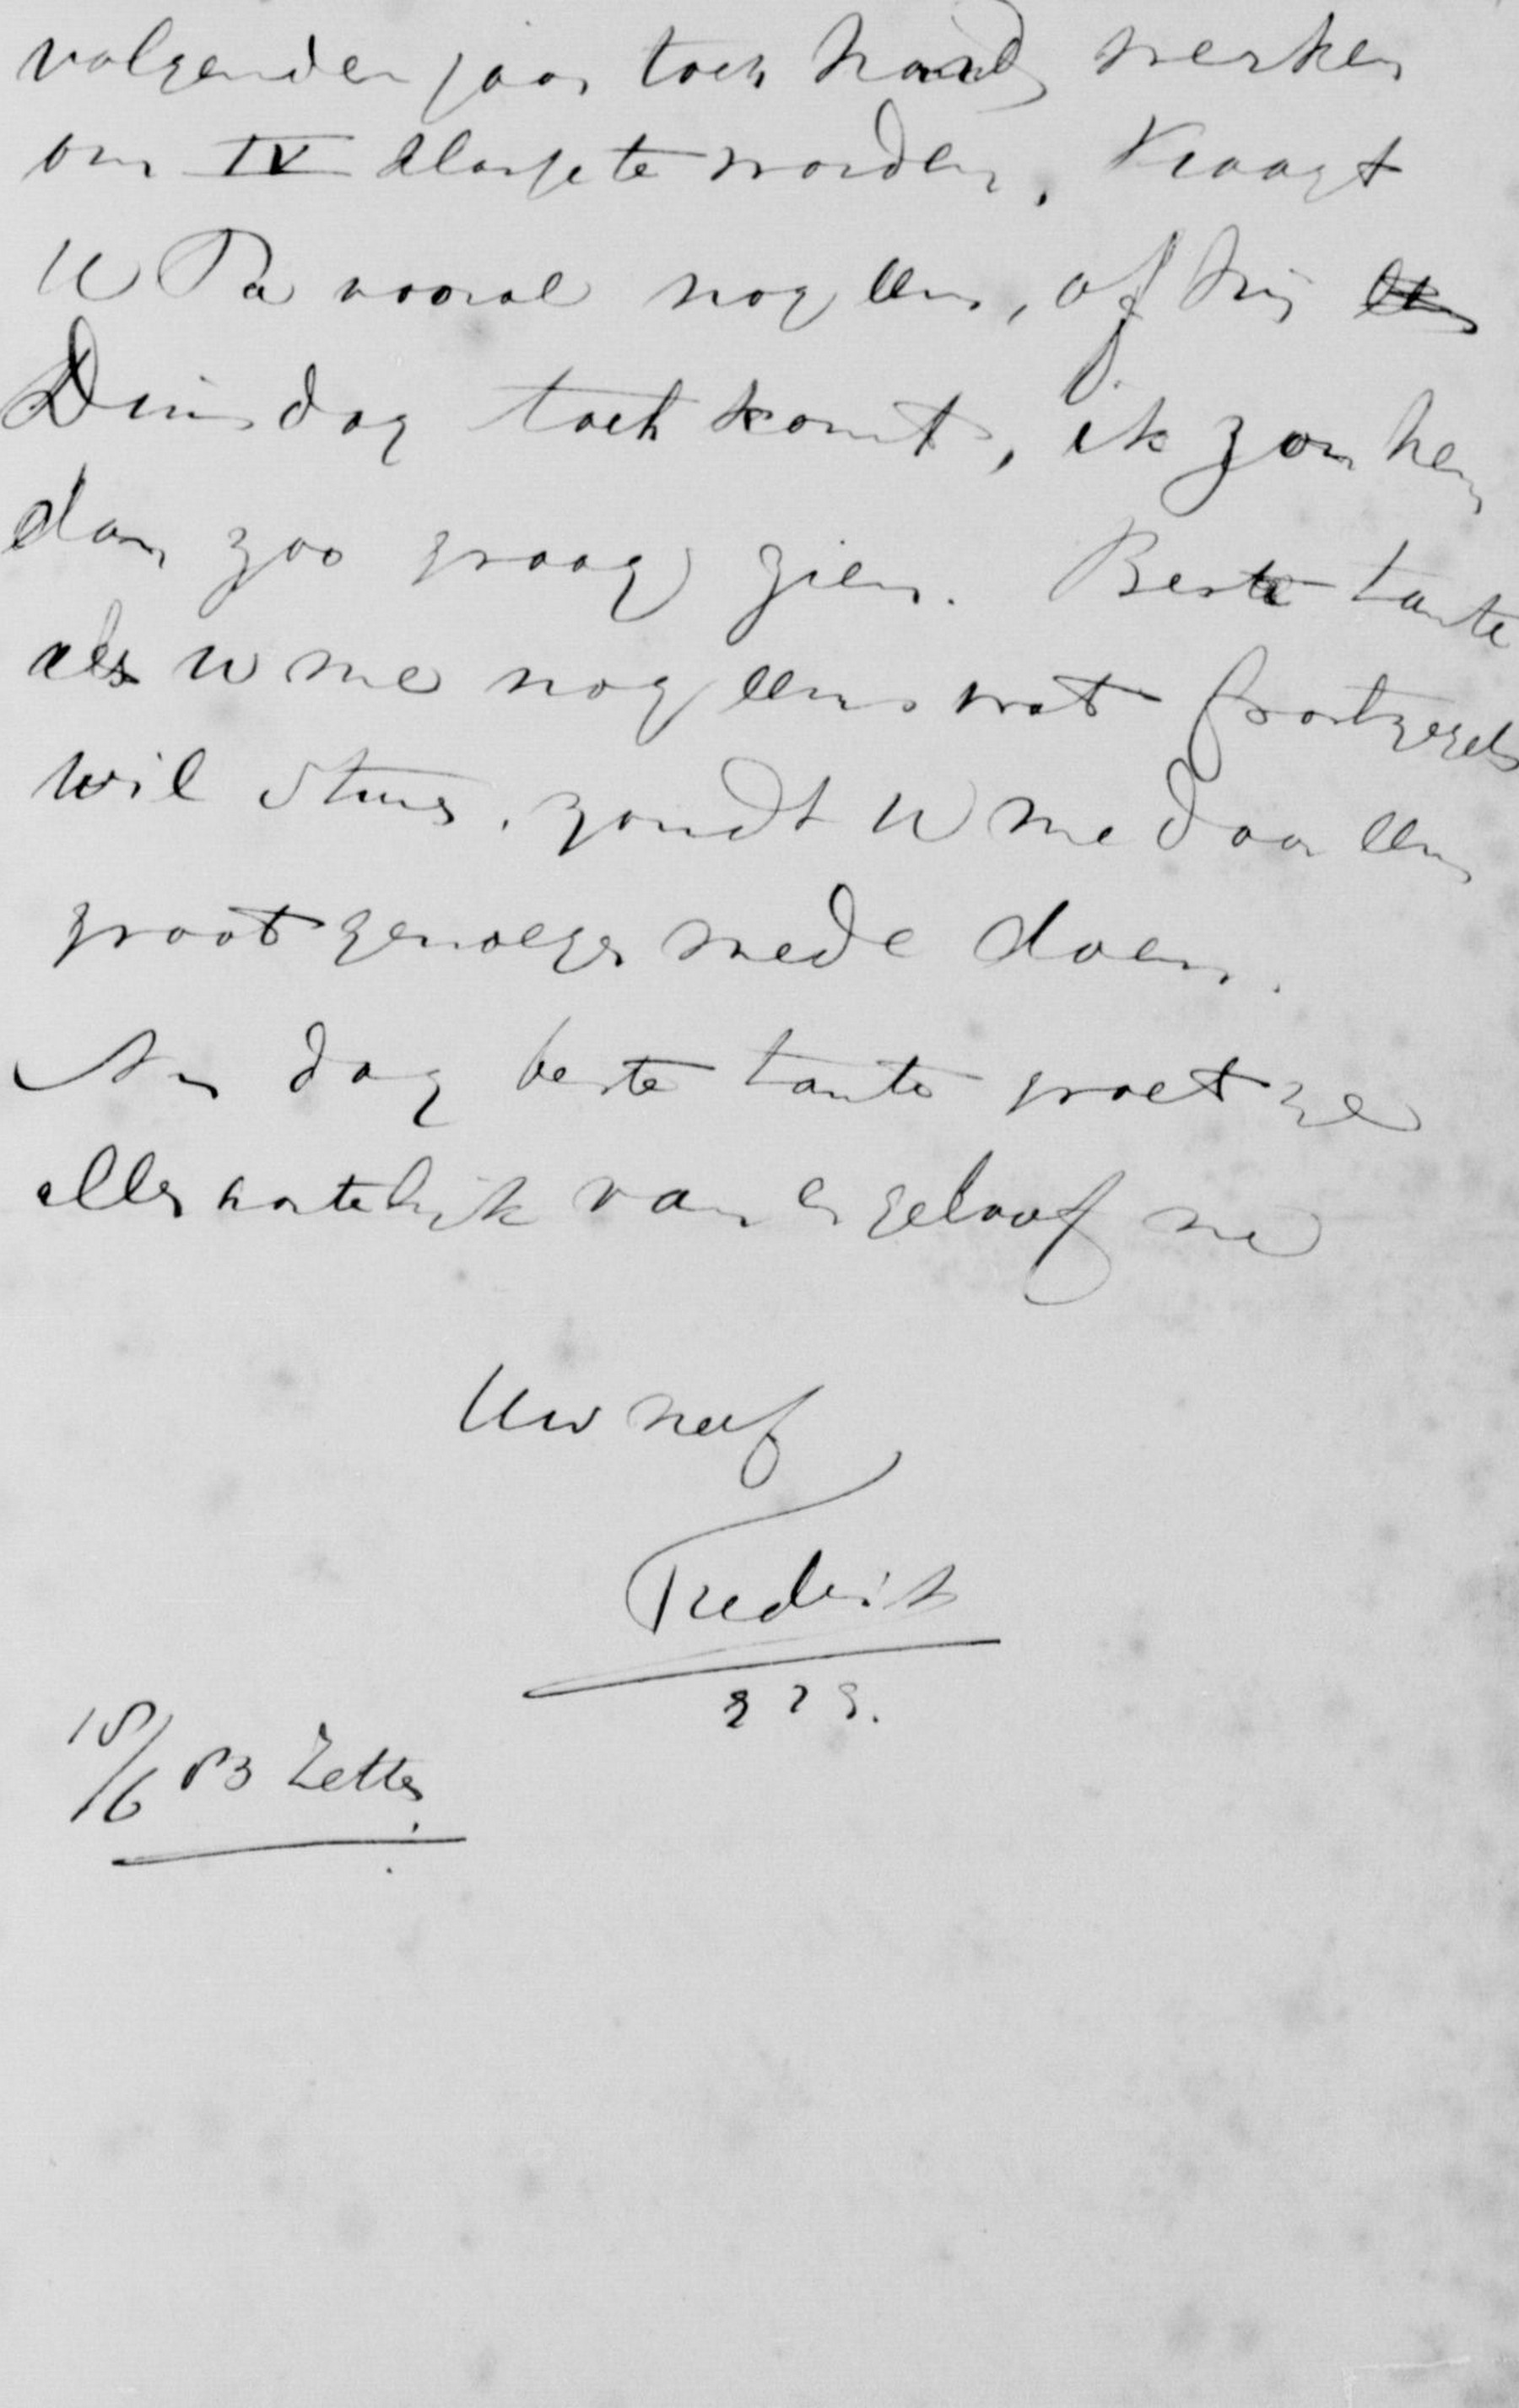 volgenden jaar toch hard werken
om IV klasse te worden. Vraagt
U Pa vooral nog eens, of hij
Dinsdag toch komt, ik zou hem
dan zoo graag zien. Beste tante
als U me nog eens wat postzegels
wil sturen, zoudt U me daar een
groot genoegen mede doen.
Nu dag beste tante groet ze
allen hartelijk van en geloof me
Uw neef
Frederik
279.
18/6 83 Zetten